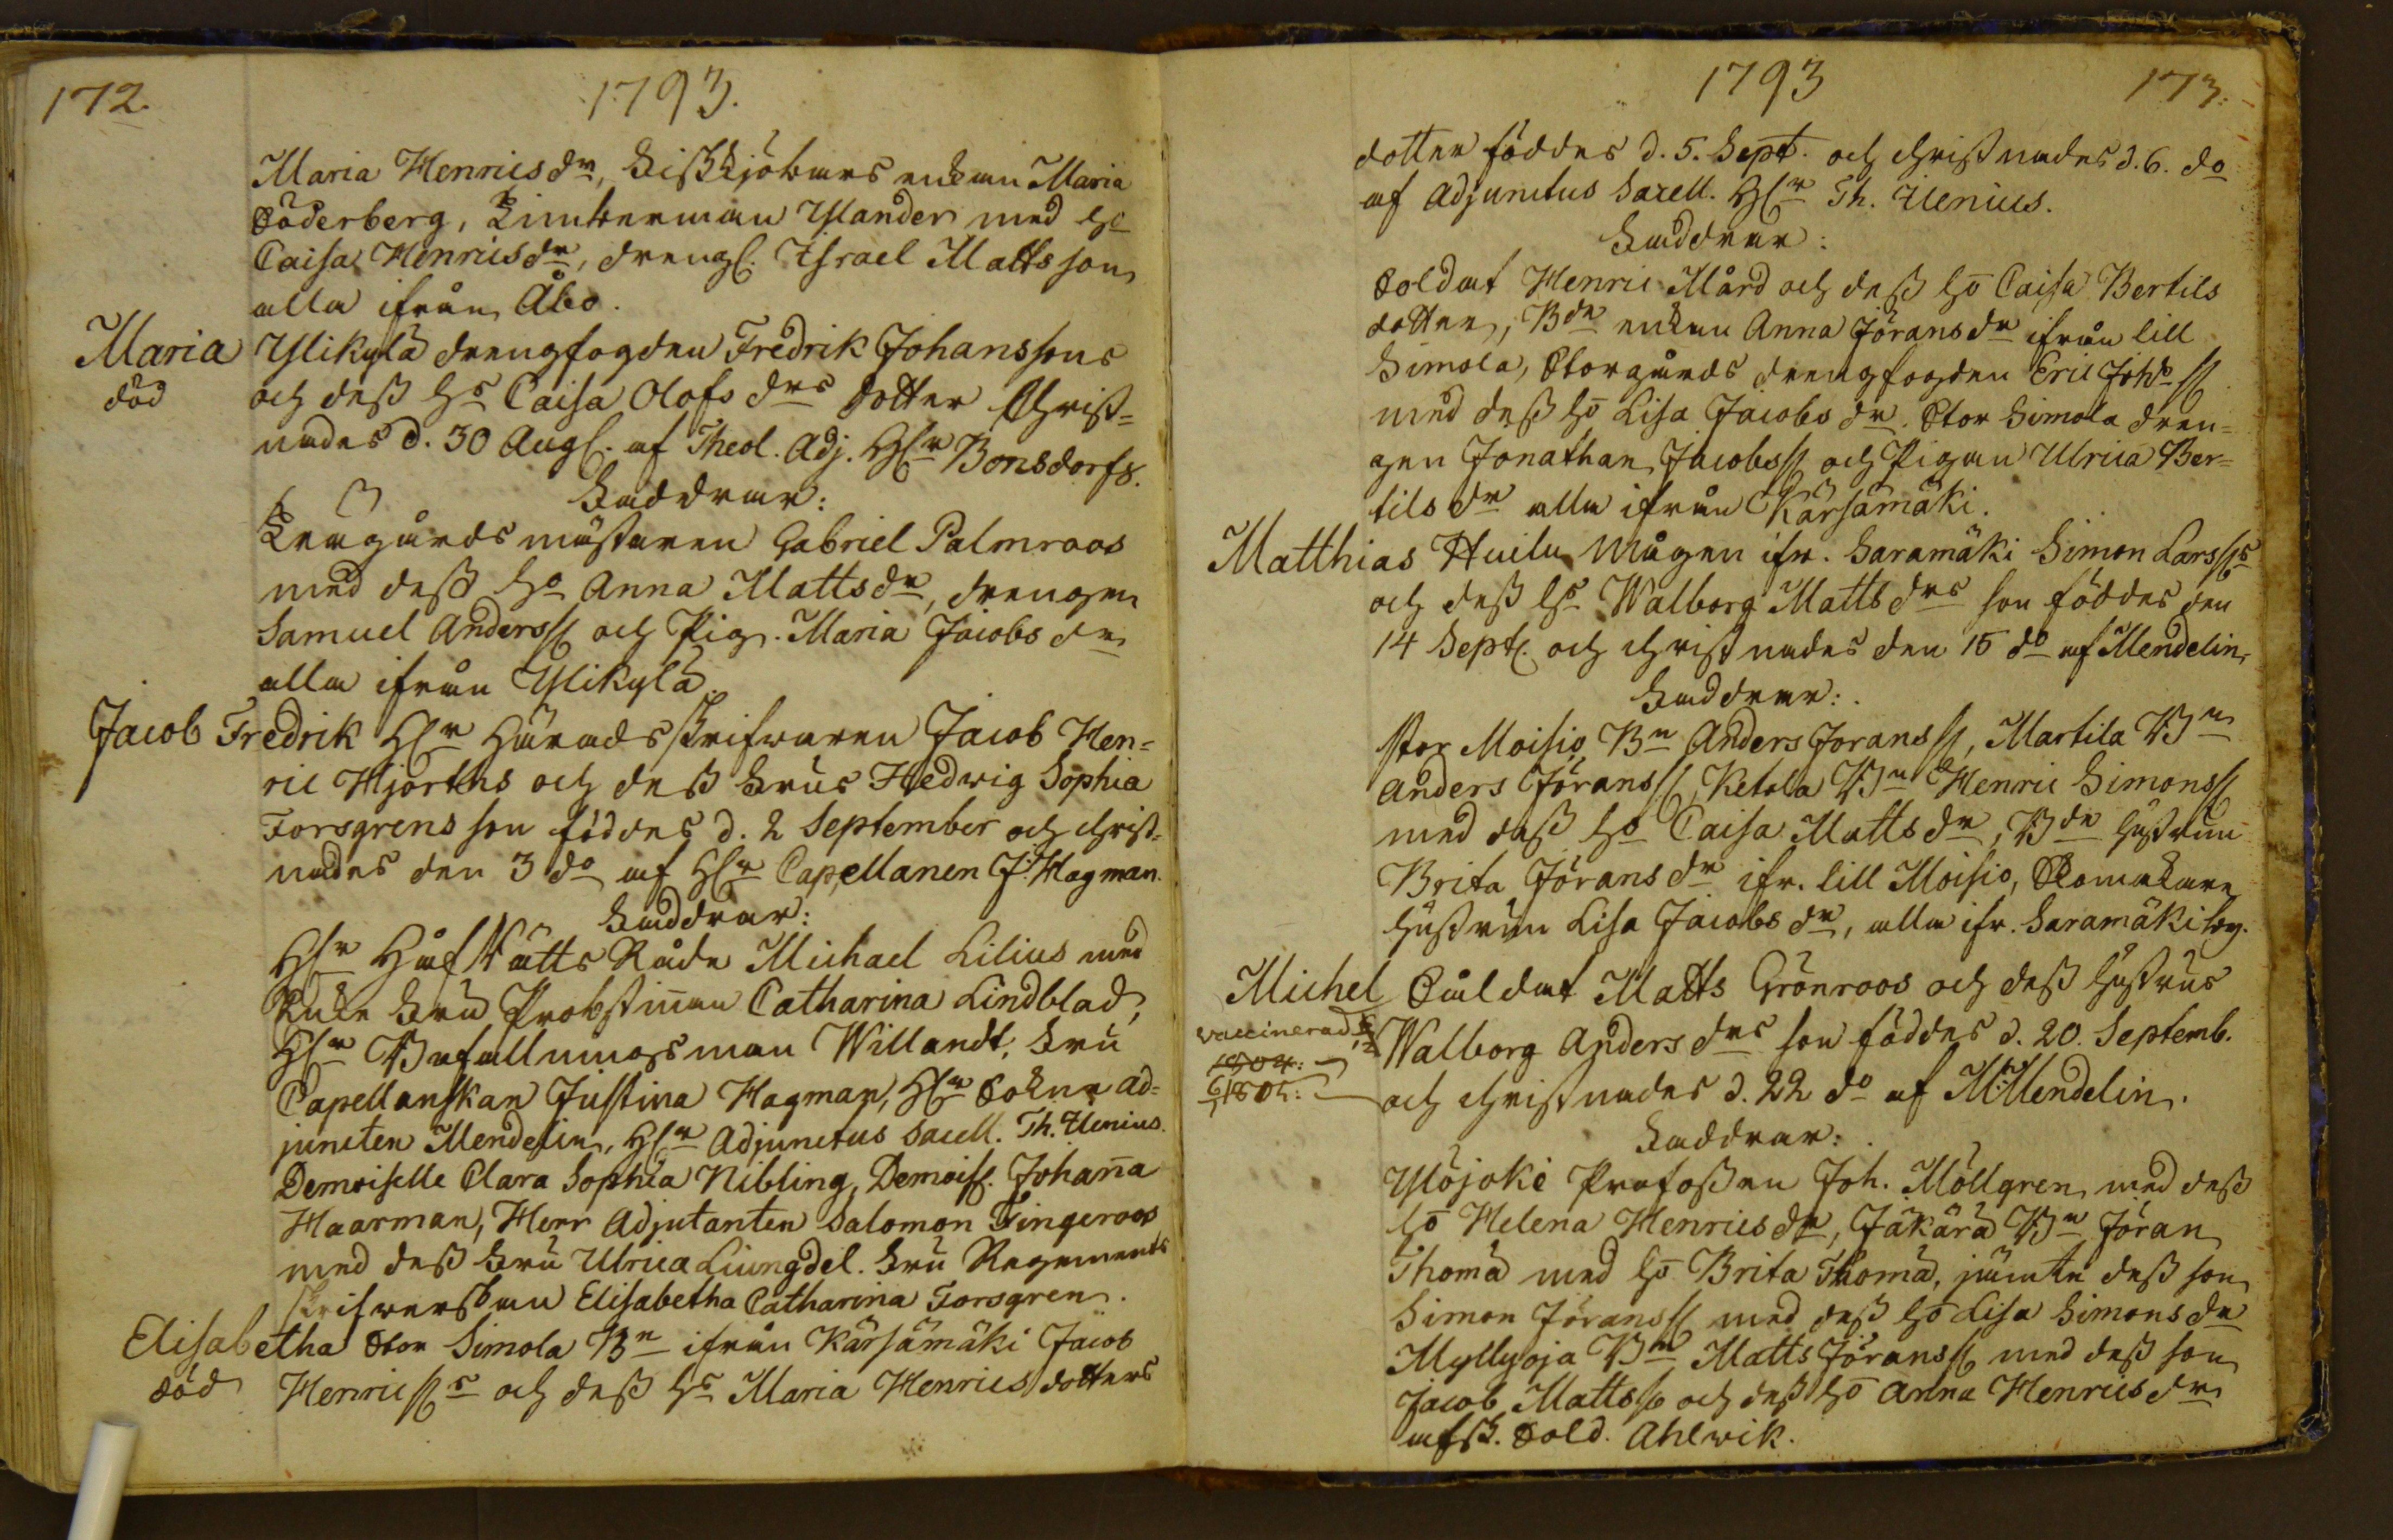 172.
1793.
Maria Henricsdr, Fiskkjöpares enkan Maria
Söderberg, Timmerman Ylander med ho
Caisa Henricsdr, drengs. Israel Mattsson
alla ifrån Åbo.
Maria Ylikylä drengfogden Fredrik Johanssons
död och dess hs Caisa Olofs drs dotter Christ=
nades d. 30 Augs. af Theol. Adj. Hr Bonsdorff.
Faddrar:
Krygårdsmästaren Gabriel Palmroos
med dess ho Anna Mattsdr, drengen
Samuel Anderss och Pig. Maria Jacobsdr
alla ifrån Ylikylä.
Jacob Fredrik Hr Häradsskrifvaren Jacob Hen=
ric Hjorths och dess Frus Hedwig Sophia
Forsgrens son föddes d. 2 September och christ=
nades den 3 do af Hr Capellanen J. Hagman.
Faddrar:
Hr HåfRätts Råde Michael Lilius med
Fru Probstinnan Catharina Lindblad,
Hr Befallningsman Willandt, Fru
Capellanskan Justina Hagman, Hr Sokne ad=
juncten Mendelin, Hr Adjunctus Sacell. Th. Ilenius.
Demoiselle Clara Sophia Nibling, Demoiss. Johanna
Haarman, Herr Adjutanten Salomon Fingeroos
med dess Fru Ulrica Liungdel. Fru Regements
skrifverskan Elisabetha Catharina Forsgren.
Elisabetha Stor Simola Bn ifrån Kärsämäki Jacob
död Henricss och dess hs Maria Henricsdotters
1793
173.
dotter föddes d. 5. Sept. och christnades d. 6. do
af Adjunctus Sacell. Hr Th. Ilenius.
Faddrar:
Soldat Henric Mård och dess ho Caisa Bertils
dotter, Bde enkan Anna Jöransdr ifrån lill
Simola, Storgårds drengfogden Eric Johss
med dess ho Lisa Jacobsdr. Stor Simola dren=
gen Jonathan Jacobss och Pigan Ulrica Ber=
tilsdr alla ifrån Kärsämäki.
Matthias Huilu Mågen ifr. Saramäki Simon Larsss
och dess hs Walborg Mattsdrs son föddes den
14 Sept. och christnades den 15 do af Mendelin
Faddrar:
Stor Moisio Bn Anders Joranss, Martila Bn
Anders Jöranss, Ketola Bn Henric Simonss
med dess ho Caisa Mattsdr, Bde hustrun
Brita Jöransdr ifr. lill Moisio, Skomakare
hustrun Lisa Jacobsdr, alla ifr. Saramäki by.
Michel Såldat Matts Grönroos och dess hustrus
vaccinerad
1804:
1805:
Walborg Andersdrs son föddes d. 20. Septemb.
och christnades d. 22 do af M: Mendelin.
Faddrar:
Yläjoki Profossen Joh. Möllgren med dess
ho Helena Henricsdr, Jäkärä Bn Jöran
Thomä med ho Brita Thomä, jämte dess son
Simon Jöranss med dess ho Lisa Simonsdr
Myllyoja Bn Matts Jöranss med dess son
Jacob Mattss och dess ho Anna Henricsdr
afsk. Sold. Ahlwik.